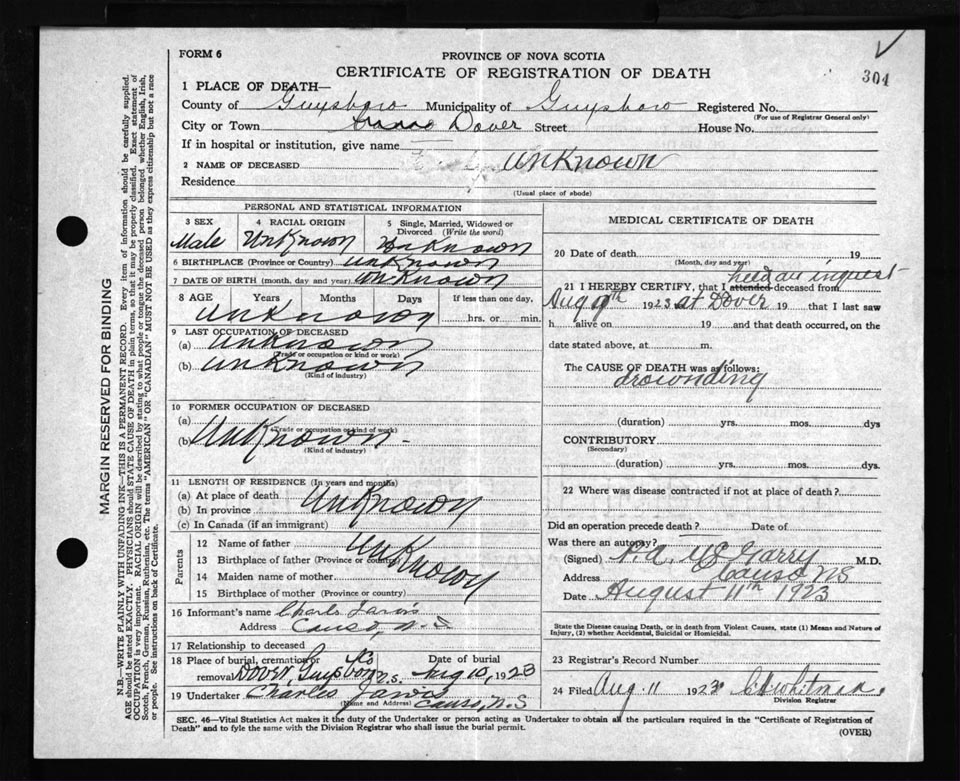 FORM 6
PROVINCE OF NOVA SCOTIA
304
CERTIFICATE OF REGISTRATION OF DEATH
1 PLACE OF DEATH—
County of Guysboro Municipality of Guysboro Registered No.
(For use of Registrar General only)
City or Town Dover Street House No.
If in hospital or institution, give name
2 NAME OF DECEASED UnKnown
Residence
(Usual place of abode)
PERSONAL AND STATISTICAL INFORMATION
3 SEX 4 RACIAL ORIGIN 5 Single, Married, Widowed or Divorced (Write the word)
Male UnKnown UnKnown
6 BIRTHPLACE (Province or Country) UnKnown
7 DATE OF BIRTH (month, day and year) UnKnown
8 AGE Years Months Days If less than one day,
UnKnown hrs. or min.
9 LAST OCCUPATION OF DECEASED
(a) UnKnown
(Trade or occupation or kind or work)
(b) UnKnown
(Kind of industry)
10 FORMER OCCUPATION OF DECEASED
(a)
(Trade or occupation or kind of work)
(b) UnKnown
(Kind of industry)
11 LENGTH OF RESIDENCE (In years and months)
(a) At place of death
(b) In province UnKnown
(c) In Canada (if an immigrant)
Parents
12 Name of father
13 Birthplace of father (Province or country) UnKnown
14 Maiden name of mother
15 Birthplace of mother (Province or country)
16 Informant's name Charles Jarvis
Address Canso, N.S
17 Relationship to deceased
18 Place of burial, cremation or removal Dover, Guysboro Co N.S. Date of burial Aug 10, 1923
19 Undertaker Charles Jarvis
(Name and Address) Canso, N.S
MEDICAL CERTIFICATE OF DEATH
20 Date of death 19
(Month, day and year)
held an inquest
21 I HEREBY CERTIFY, that I attended deceased from
Aug 9th 1923 at Dover 19 that I last saw
h alive on 19 and that death occurred, on the
date stated above, at m.
The CAUSE OF DEATH was as follows:
drownding
(duration) yrs. mos. dys
CONTRIBUTORY
(Secondary)
(duration) yrs. mos. dys.
22 Where was disease contracted if not at place of death?
Did an operation precede death? Date of
Was there an autopsy?
(Signed) McGarry M.D.
Address Canso NS
Date August 11th 1923
State the Disease causing Death, or in death from Violent Causes, state (1) Means and Nature of
Injury, (2) whether Accidental, Suicidal or Homicidal.
23 Registrar's Record Number
24 Filed Aug. 11 1923 Whitman.
Division Registrar
SEC. 46—Vital Statistics Act makes it the duty of the Undertaker or person acting as Undertaker to obtain all the particulars required in the "Certificate of Registration of
Death" and to fyle the same with the Division Registrar who shall issue the burial permit.
(OVER)
MARGIN RESERVED FOR BINDING
N.B.—WRITE PLAINLY WITH UNFADING INK—THIS IS A PERMANENT RECORD. Every item of information should be carefully supplied.
AGE should be stated EXACTLY. PHYSICIANS should STATE CAUSE OF DEATH in plain terms, so that it may be properly classified. Exact statement of
OCCUPATION is very important. RACIAL ORIGIN will be described by stating to what people or tongue the deceased person belonged whether English, Irish,
Scotch, French, German, Russian, Ruthenian, etc. The terms "AMERICAN" OR "CANADIAN" MUST NOT BE USED as they express citizenship but not a race
or people. See instructions on back of Certificate.